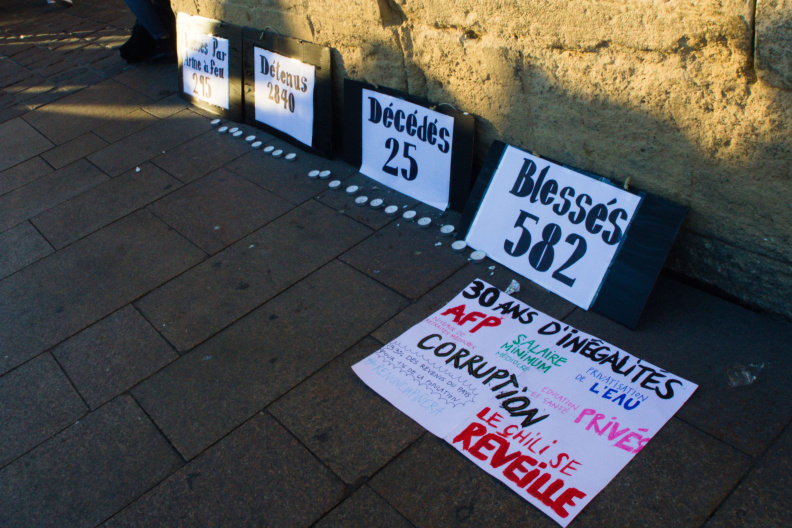 Par
Arme à Feu
295
Détenus
2840
Décédés
25
Blessés
582
30 ANS D'INÉGALITÉS
AFP
SALAIRE
MINIMUM
PRIVATISATION
DE L'EAU
CORRUPTION
DES REVENUS DU PAYS
EDUCATION
ET SANTÉ
PRIVÉS
LE CHILI SE
RÉVEILLE